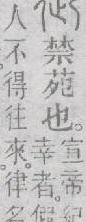 禁苑也。宣帝紀
幸者。假
人不得往來。律名